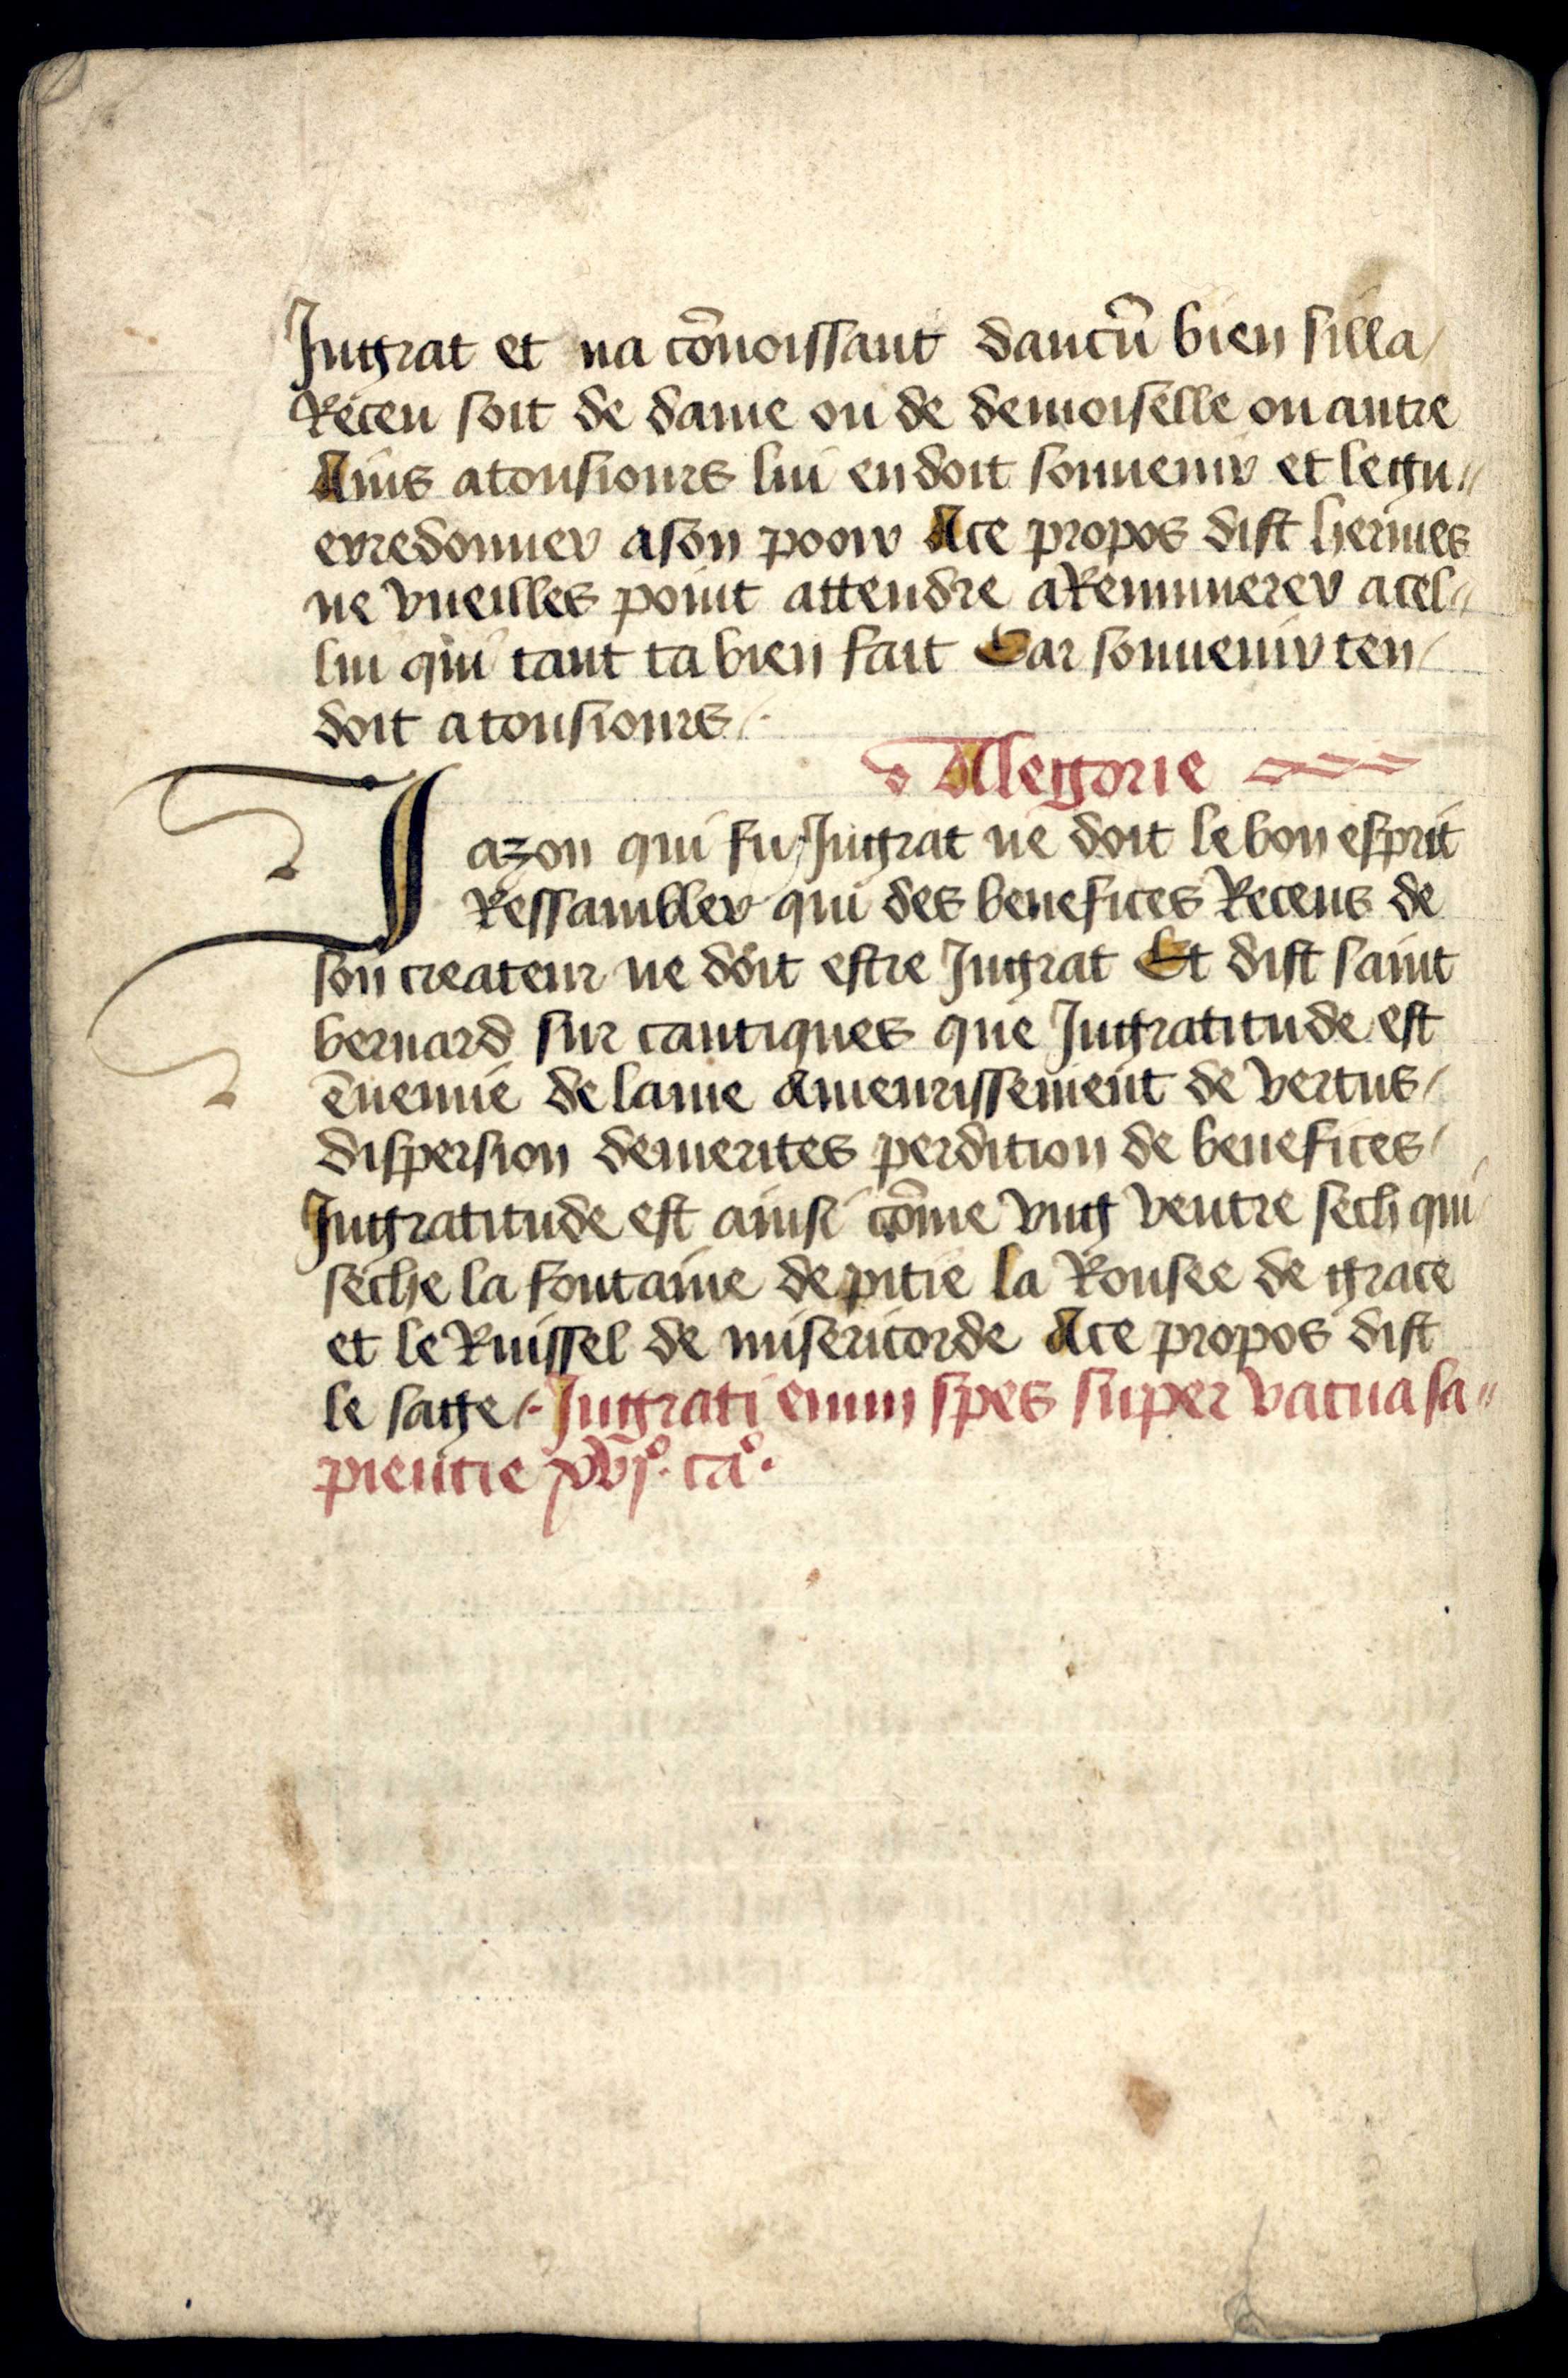 Jngrat et na cõnoissant daucũ bien silla/
Receu soit de dame ou de demoiselle ou autre
Ains atousiours lui endoit souuenir et legu//
erredonner ason pooir Ace propos dist hermes
ne vueilles point attendre aRemunerer acel//
lui qui tant ta bien fait Car souuenir ten/
doit atousiours/.
Alegorie
Jazon qui fu Jngrat ne doit lebon esprit
Ressambler qui des benefices Receus de
son createur ne doit estre Jngrat Et dist saint
bernard sur cantiques que Jngratitude est
ẽnemie de lame Ameurissement de vertus/
dispersion demerites perdition de benefices/
Jngratitude est ainsi cõme vng ventre sech qui/
seche la fontaine de pitie la Rousee de grace
et le Ruissel de misericorde Ace propos dist
le sage/. Jngrati enim spes super vacua sa//
pientie xvjº. caº.